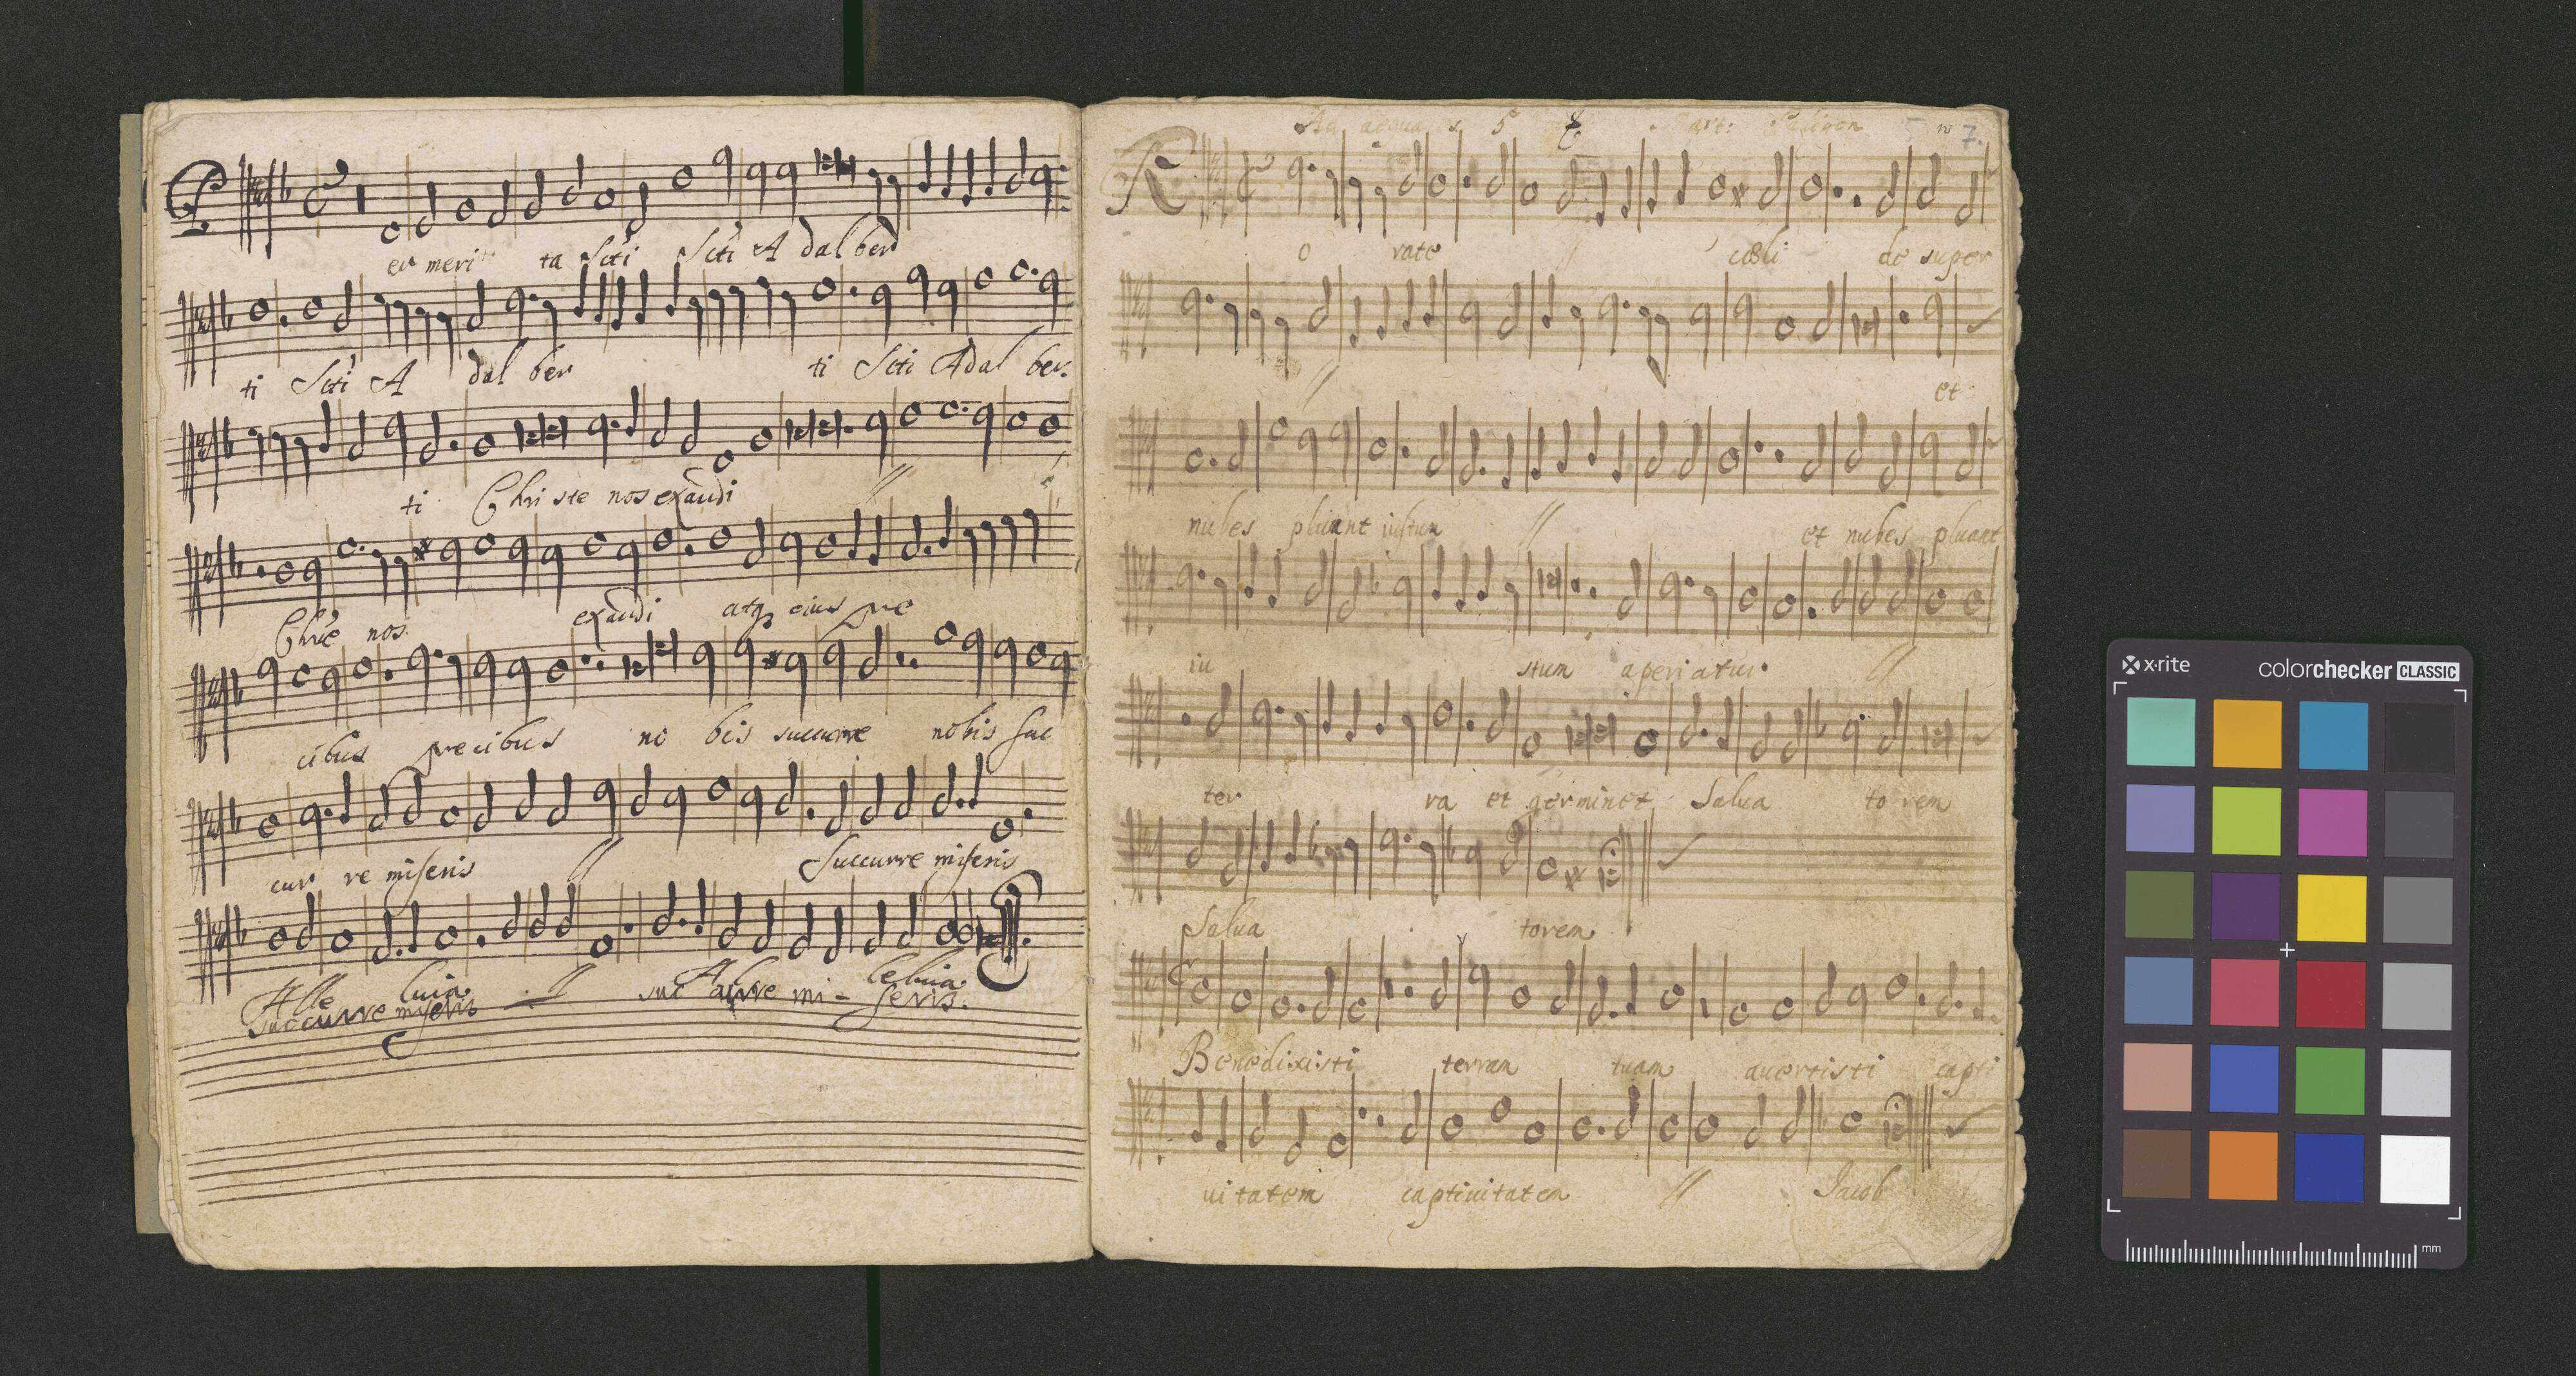 P er meri ta Scti Scti A dal ber
ti Scti A dal ber ti Scti Adal ber.
ti Chri ste nos exaudi //
Chrie nos exaudi atq eius pre
cibus precibus no bis succurre nobis suc
cur re miseris // Succurre miseris
Alle luia // A leluia
Succurre miseris suc curre mi - seris.
Ad aequa s 5 Mart:
7.
R o rate // coeli de super
// et
nubes pluant iustum // et nubes pluant
iu stum aperiatur //
ter ra et germinet Salua to rem
Salua torem
Benedixisti terram tuam auertisti capti
uitatem captiuitatem // Jacob
x-rite colorchecker CLASSIC
mm